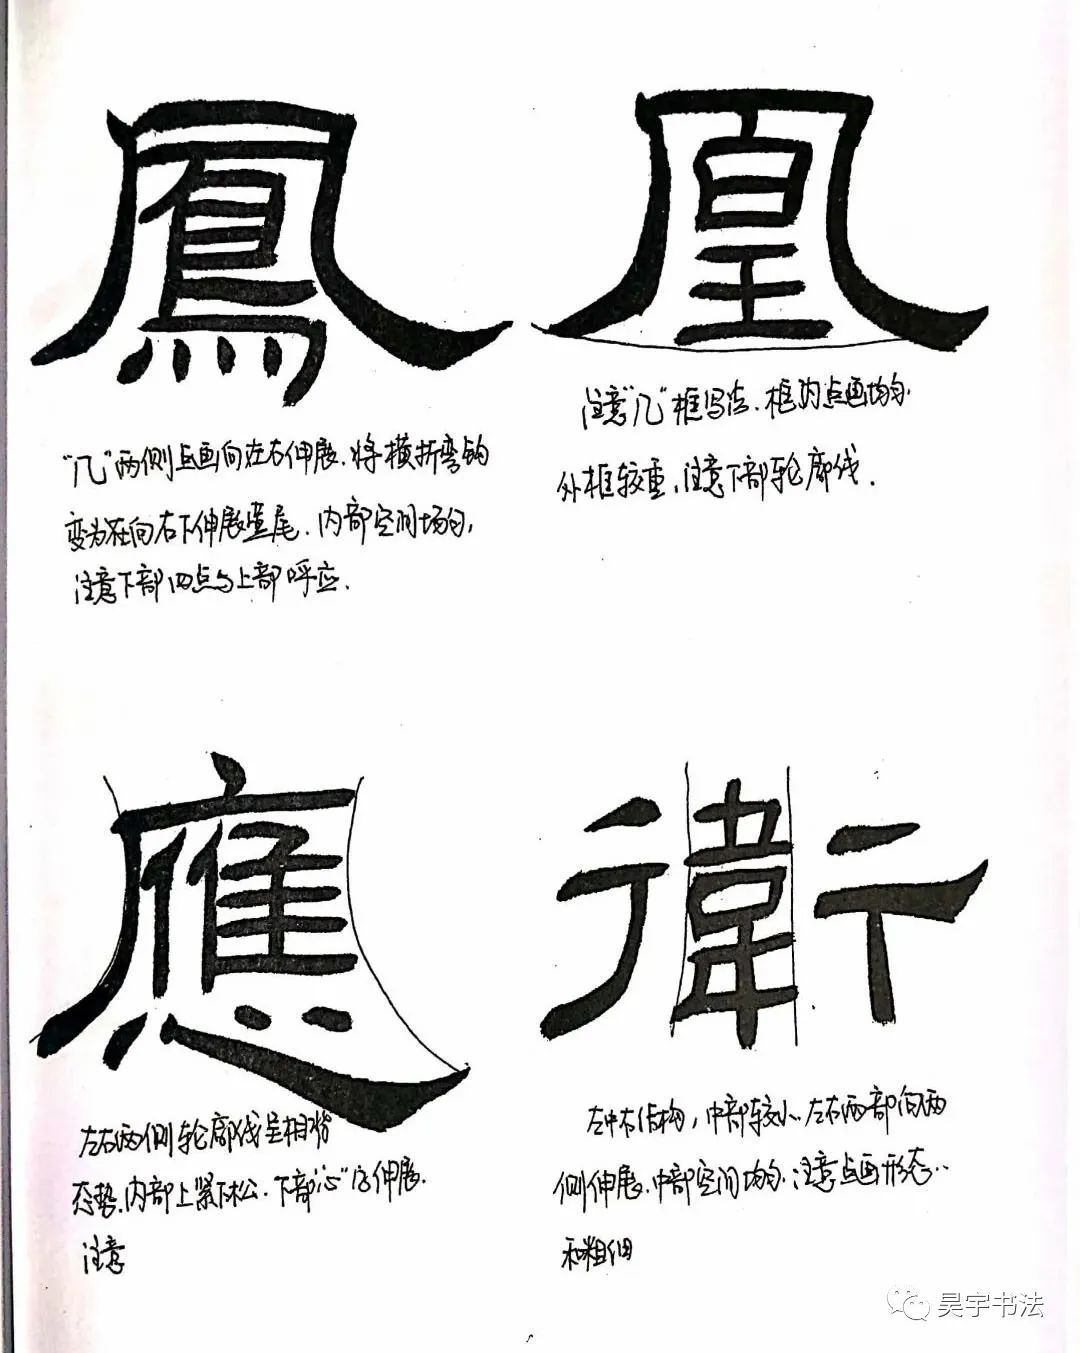 鳳
凰
"几"两侧点画向左右伸展.将横折弯钩
变为在向右下伸展雁尾.内部空间均匀,
注意下部四点与上部呼应.
注意"几"框写法.框内点画均匀.
外框较重,注意下部轮廓线.
應
衛
左右两侧轮廓线呈相背
态势.内部上紧下松.下部"心"字伸展.
注意
左中右结构,中部较小.左右两部向两
侧伸展.中部空间均匀.注意点画形态..
和粗细
昊宇书法